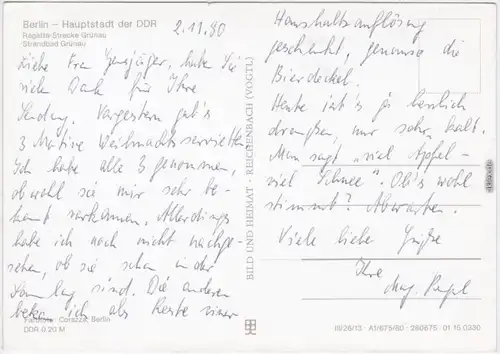 Berlin – Hauptstadt der DDR
Regatta-Strecke Grünau
Strandbad Grünau
2.11.80
Liebe Frau, haben Sie
vielen Dank für Ihre
Sendung. Vorgestern gab's
3 Motive Weihnachtsservietten
Ich habe alle 3 genommen,
obwohl sie mir sehr be-
kannt vorkamen. Allerdings
habe ich noch nicht nachge-
sehen, ob sie schon in der
Sammlung sind. Die anderen
bekam ich als Reste einer
Farbfoto: Corazza, Berlin
DDR 0,20 M
BILD UND HEIMAT · REICHENBACH (VOGTL)
Haushaltsauflösung
geschenkt, genauso die
Bierdeckel.
Heute ist's ja herrlich
draußen, nur sehr kalt.
Man sagt "viel Äpfel –
viel Schnee". Ob's wohl
stimmt? Abwarten.
Viele liebe Grüße
Ihre
III/26/13 · A1/675/80 · 280675 01 15 0330